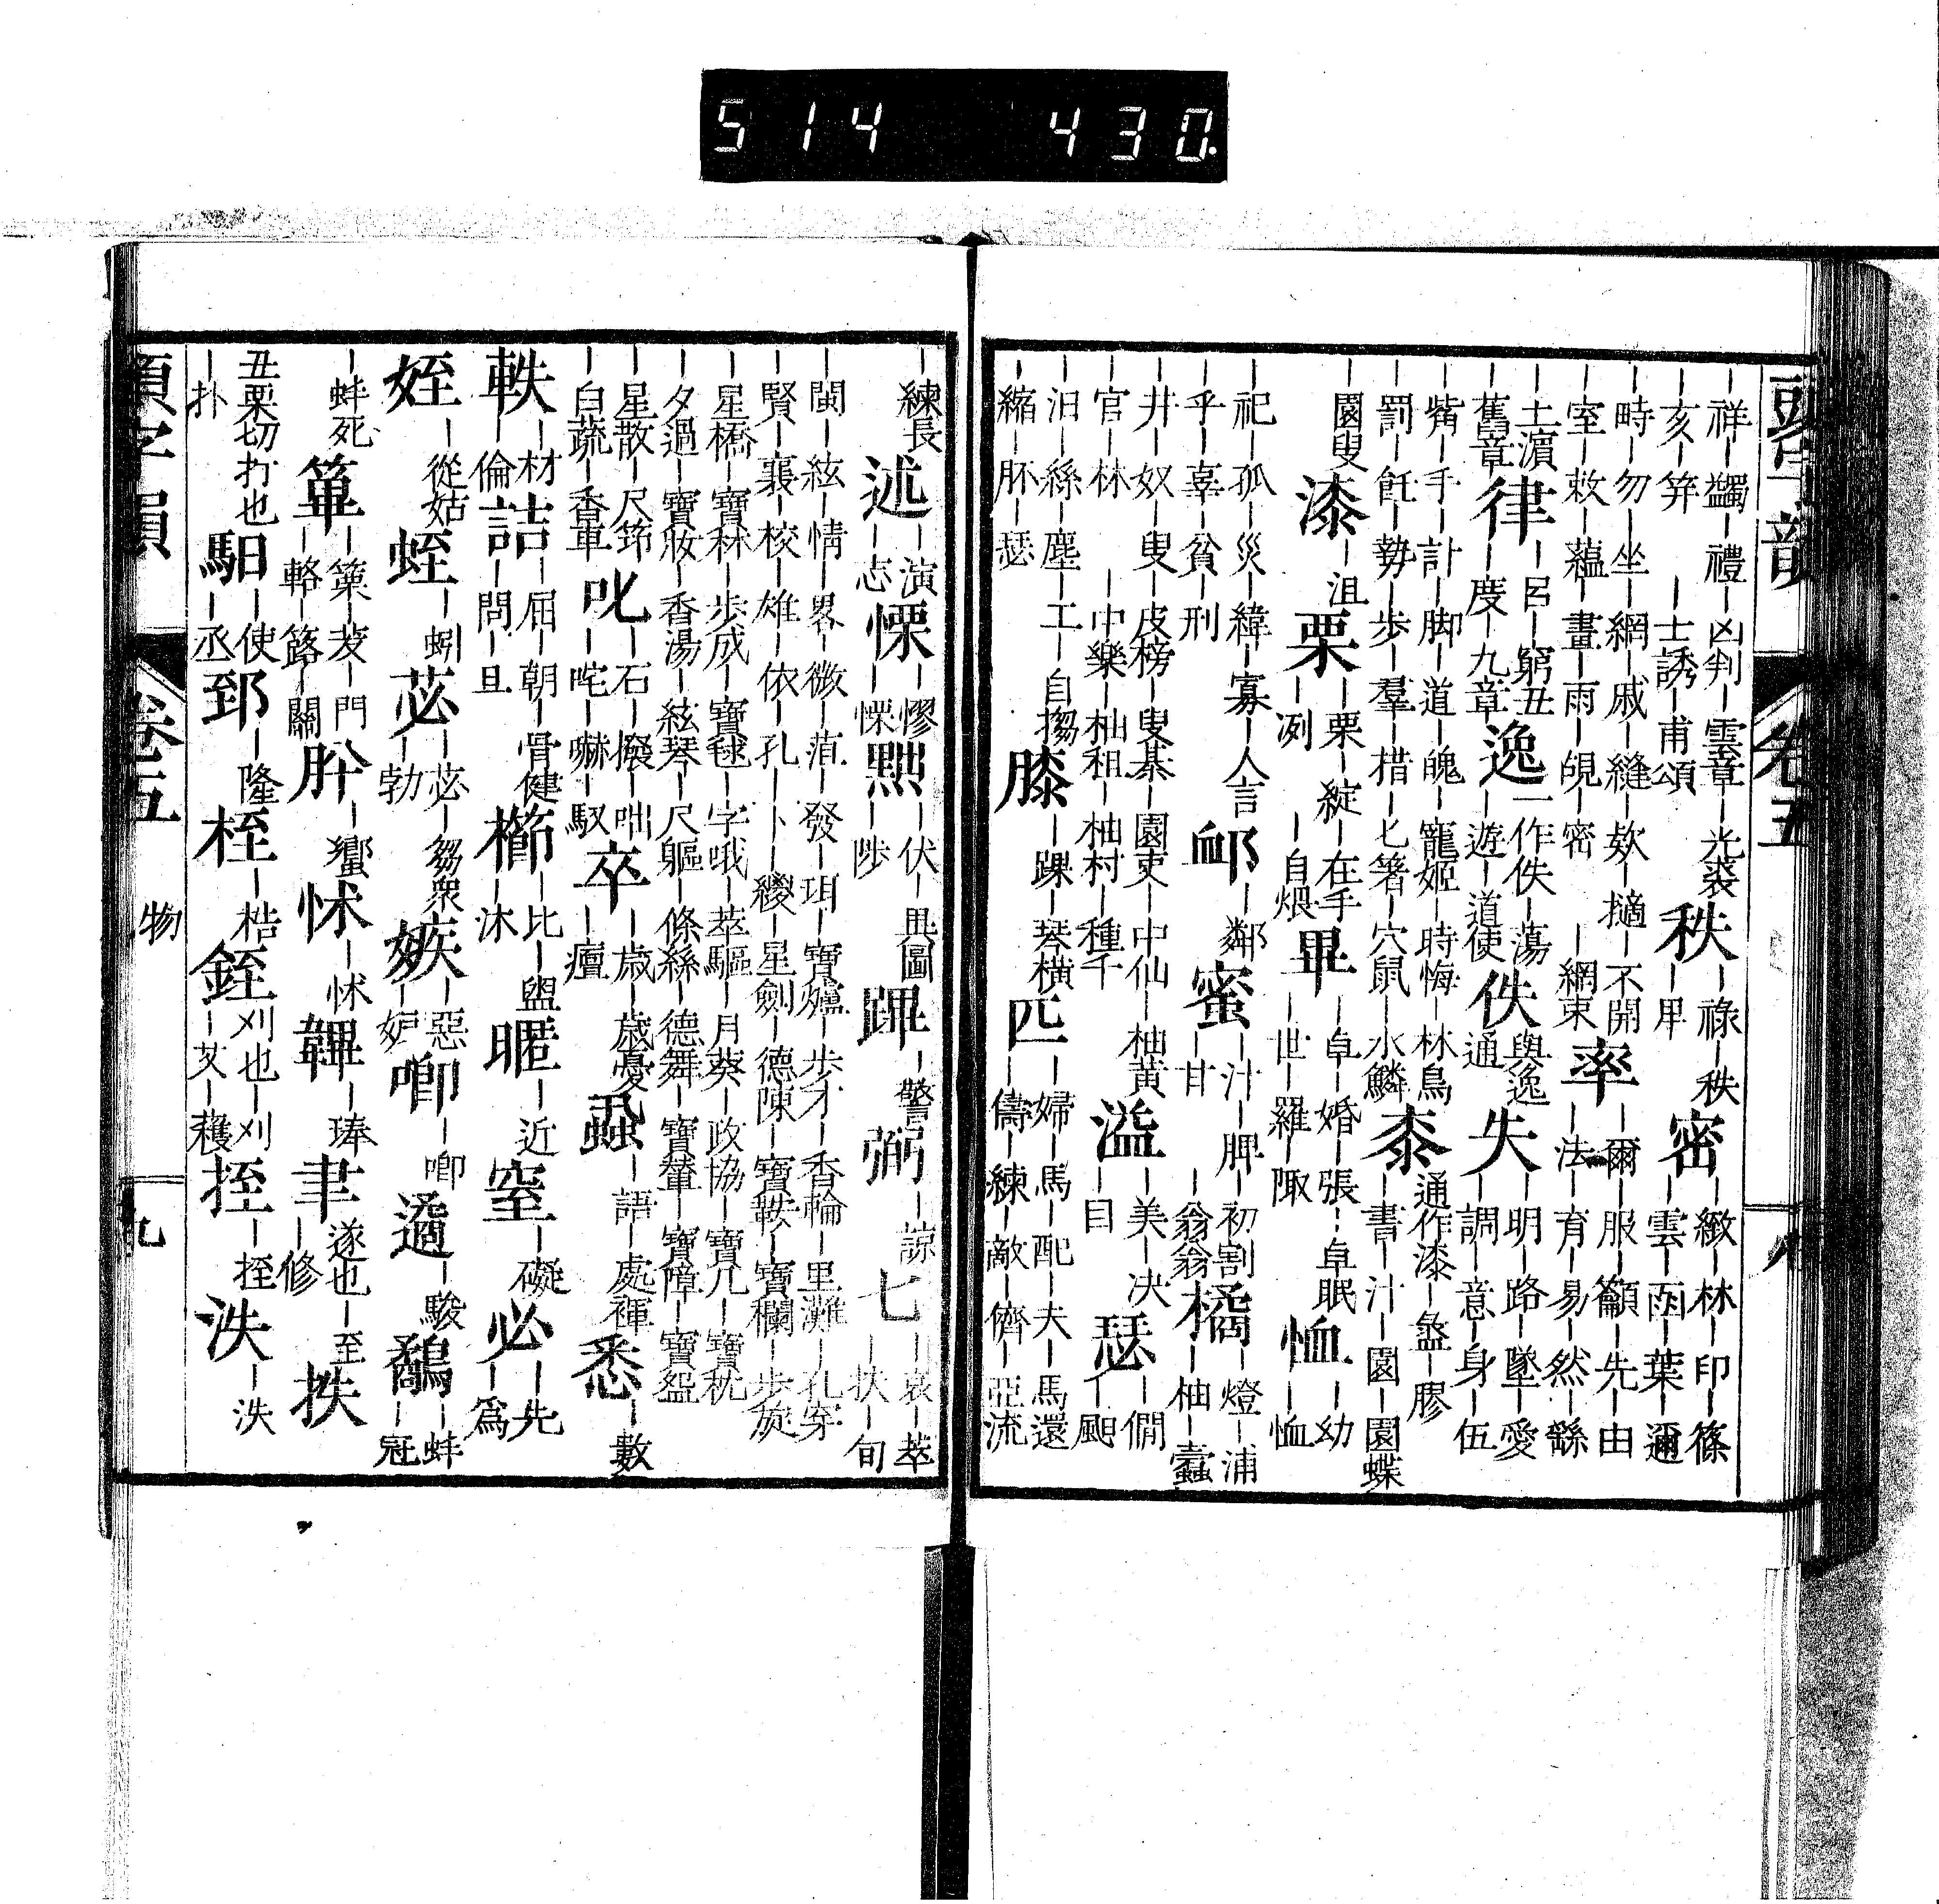 頭字韻 卷五 八
｜祥｜蠲｜禮｜凶判｜雲章｜光裘｜亥｜笄｜士誘｜甫頌 秩｜祿｜秩 密｜緻｜林｜印｜篠｜雲｜函｜葉｜邇
｜時｜勿｜坐｜網｜戚｜縫｜欸｜擿｜不開｜室｜敕｜蘊｜畫｜雨｜密｜網東 率｜爾｜服｜籲｜先｜由｜法｜育｜易｜然｜繇
｜土濵｜舊章 律｜呂｜窮丑｜度｜九章 逸 一作佚｜蕩｜遊｜道使 佚 與逸通 失｜明｜路｜墜｜愛｜調｜意｜身｜伍
｜觜｜手｜計｜脚｜道｜魄｜寵姬｜時悔｜林鳥｜罰｜飪｜勢｜步｜羣｜措｜匕箸｜穴鼠｜水鱗 桼 通作漆｜盤｜膠｜書｜汁｜園｜園蝶
｜園叟 漆｜沮 栗｜栗｜綻｜在手｜冽｜自煨 畢｜卓｜婚｜張｜卓眠｜世｜羅｜陬 恤｜幼｜恤
｜祀｜孤｜災｜緯｜寡｜人言｜乎｜辜｜貧｜刑 卹｜鄰 蜜｜汁｜脾｜初割｜甘｜翁翁 橘｜燈｜浦｜柚｜蠹
｜井｜奴｜叟｜皮榜｜叟棊｜園吏｜中仙｜柚黃｜官｜林｜中樂｜柚租｜柚村｜種千 溢｜美｜决｜目 瑟｜僩｜颸
｜汨｜絲｜塵｜工｜自搊｜縮｜胚｜瑟 膝｜踝｜琴横 匹｜婦｜馬｜配｜夫｜馬還｜儔｜練｜敵｜儕｜亞流
｜練長 述｜演｜志 慄｜憀｜慄｜伏｜異圖｜陟 蹕｜警 弼｜諒 七｜哀｜萃｜扶｜旬
｜閩｜絃｜情｜畧｜微｜菹｜發｜珥｜寶爐｜步才｜香輪｜里灘｜孔穿｜賢｜襄｜校｜雄｜依｜孔｜卜｜纓｜星劍｜德陳｜寶鞍｜寶欄｜步旋
｜星橋｜寶秝｜步成｜寶毬｜字哦｜萃驅｜月葵｜政協｜寶几｜寶枕｜夕過｜寶妝｜香湯｜絃琴｜尺軀｜條絲｜德舞｜寶輦｜寶障｜寶盌
｜星散｜尺｜白蔬｜香車 叱｜石｜撥｜咄｜咤｜嚇｜馭 卒｜歲｜歲憂｜癉 蝨｜語｜處褌 悉｜數
軼｜材｜倫 詰｜屈｜朝｜骨健｜問｜旦 櫛｜比｜盥｜沐 暱｜近 窒｜礙 必｜先｜爲
姪｜從姑 蛭｜蚓 苾｜苾｜芻衆｜勃 嫉｜惡｜妒 唧｜唧 遹｜駿 鷸｜蚌｜冠
｜蚌死 篳｜篥｜茇｜門｜輅｜簬｜關 肸｜蠁 怵｜怵 韠｜琫 聿 遂也｜至｜修 抶
丑栗切打也｜扑 馹｜使｜丞 郅｜隆 桎｜梏 銍｜刈也｜刈｜艾｜穫 挃｜挃 泆｜泆
頭字韻 卷五 物 九
514 430.